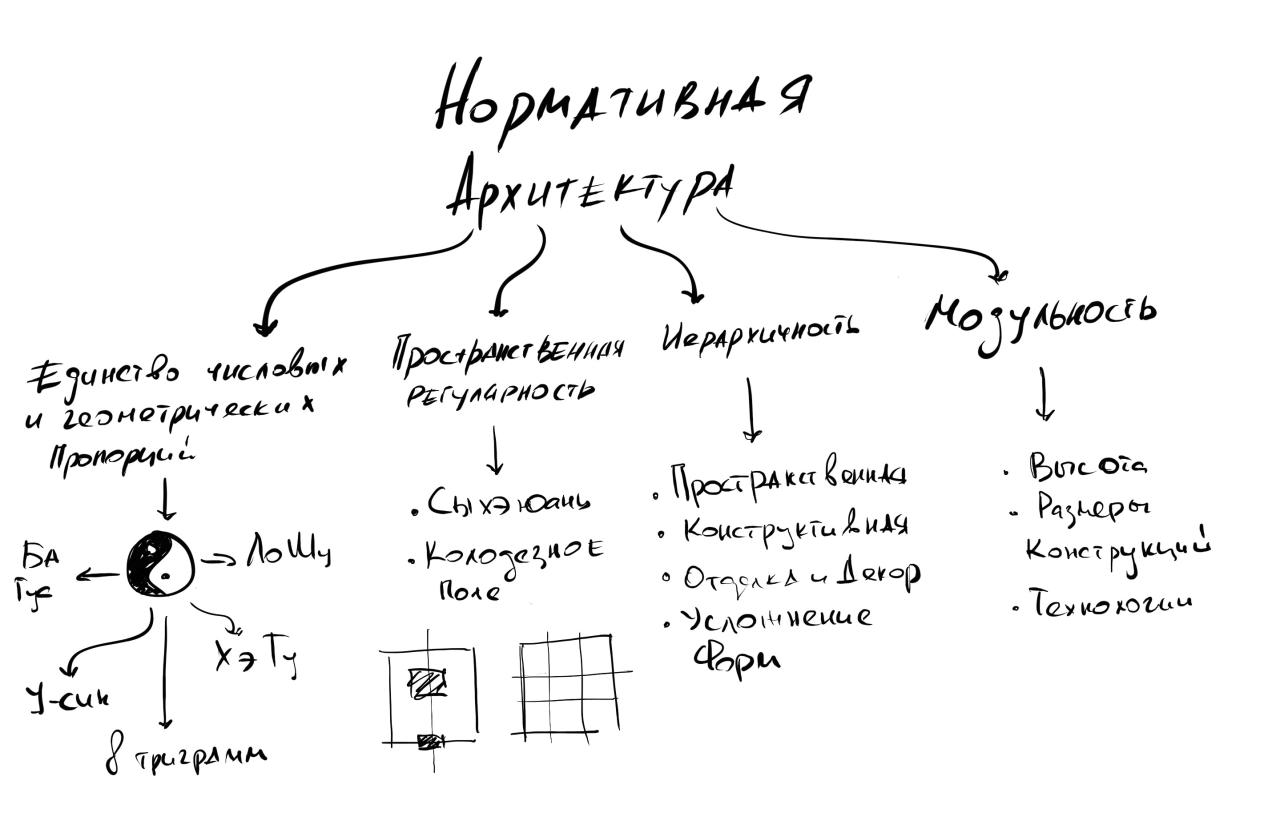 Нормативная
Архитектура
Единство числовых
и геометрических
Пропорций
Ба
Гуа
ЛоШу
ХэТу
У-син
8 триграмм
Пространственная
регулярность
• Сыхэюань
• Колодезное
Поле
Иерархичность
• Пространственная
• Конструктивная
• Отделка и Декор
• Усложнение
Форм
Модульность
• Высота
• Размеры
Конструкций
• Технологии